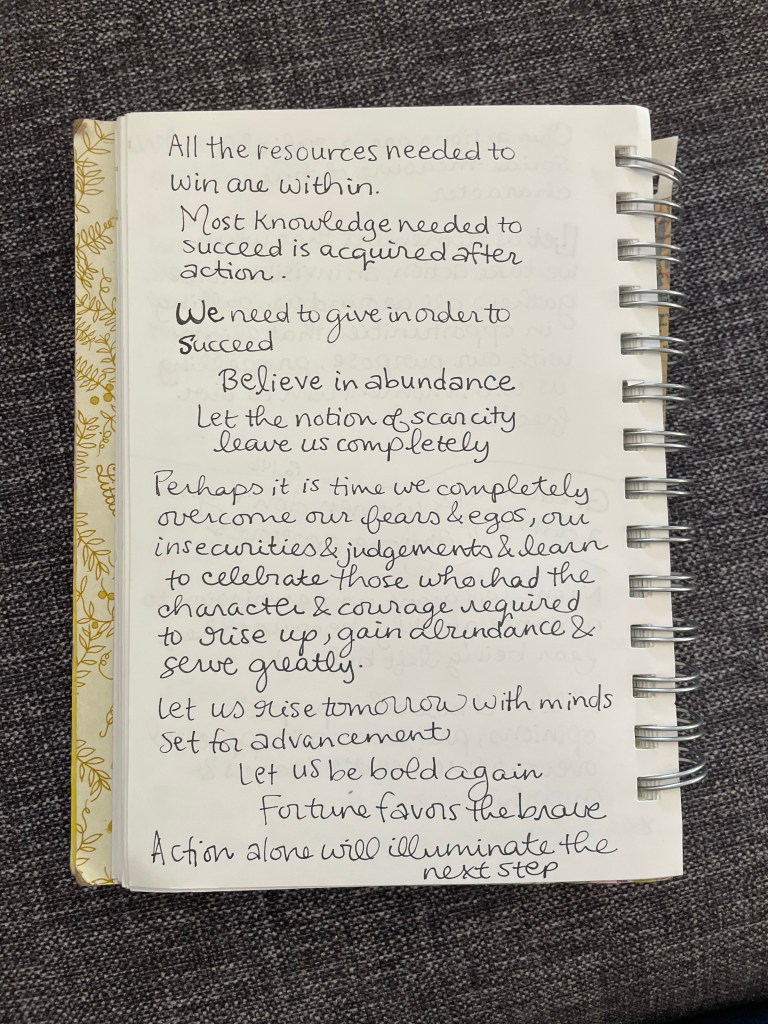 All the resources needed to
win are within.
Most knowledge needed to
succeed is acquired after
action.
We need to give in order to
succeed
Believe in abundance
Let the notion of scarcity
leave us completely
Perhaps it is time we completely
overcome our fears & egos, our
insecurities & judgements & learn
to celebrate those who had the
character & courage required
to rise up, gain abundance &
serve greatly.
Let us rise tomorrow with minds
set for advancement
Let us be bold again
Fortune favors the brave
Action alone will illuminate the
next step